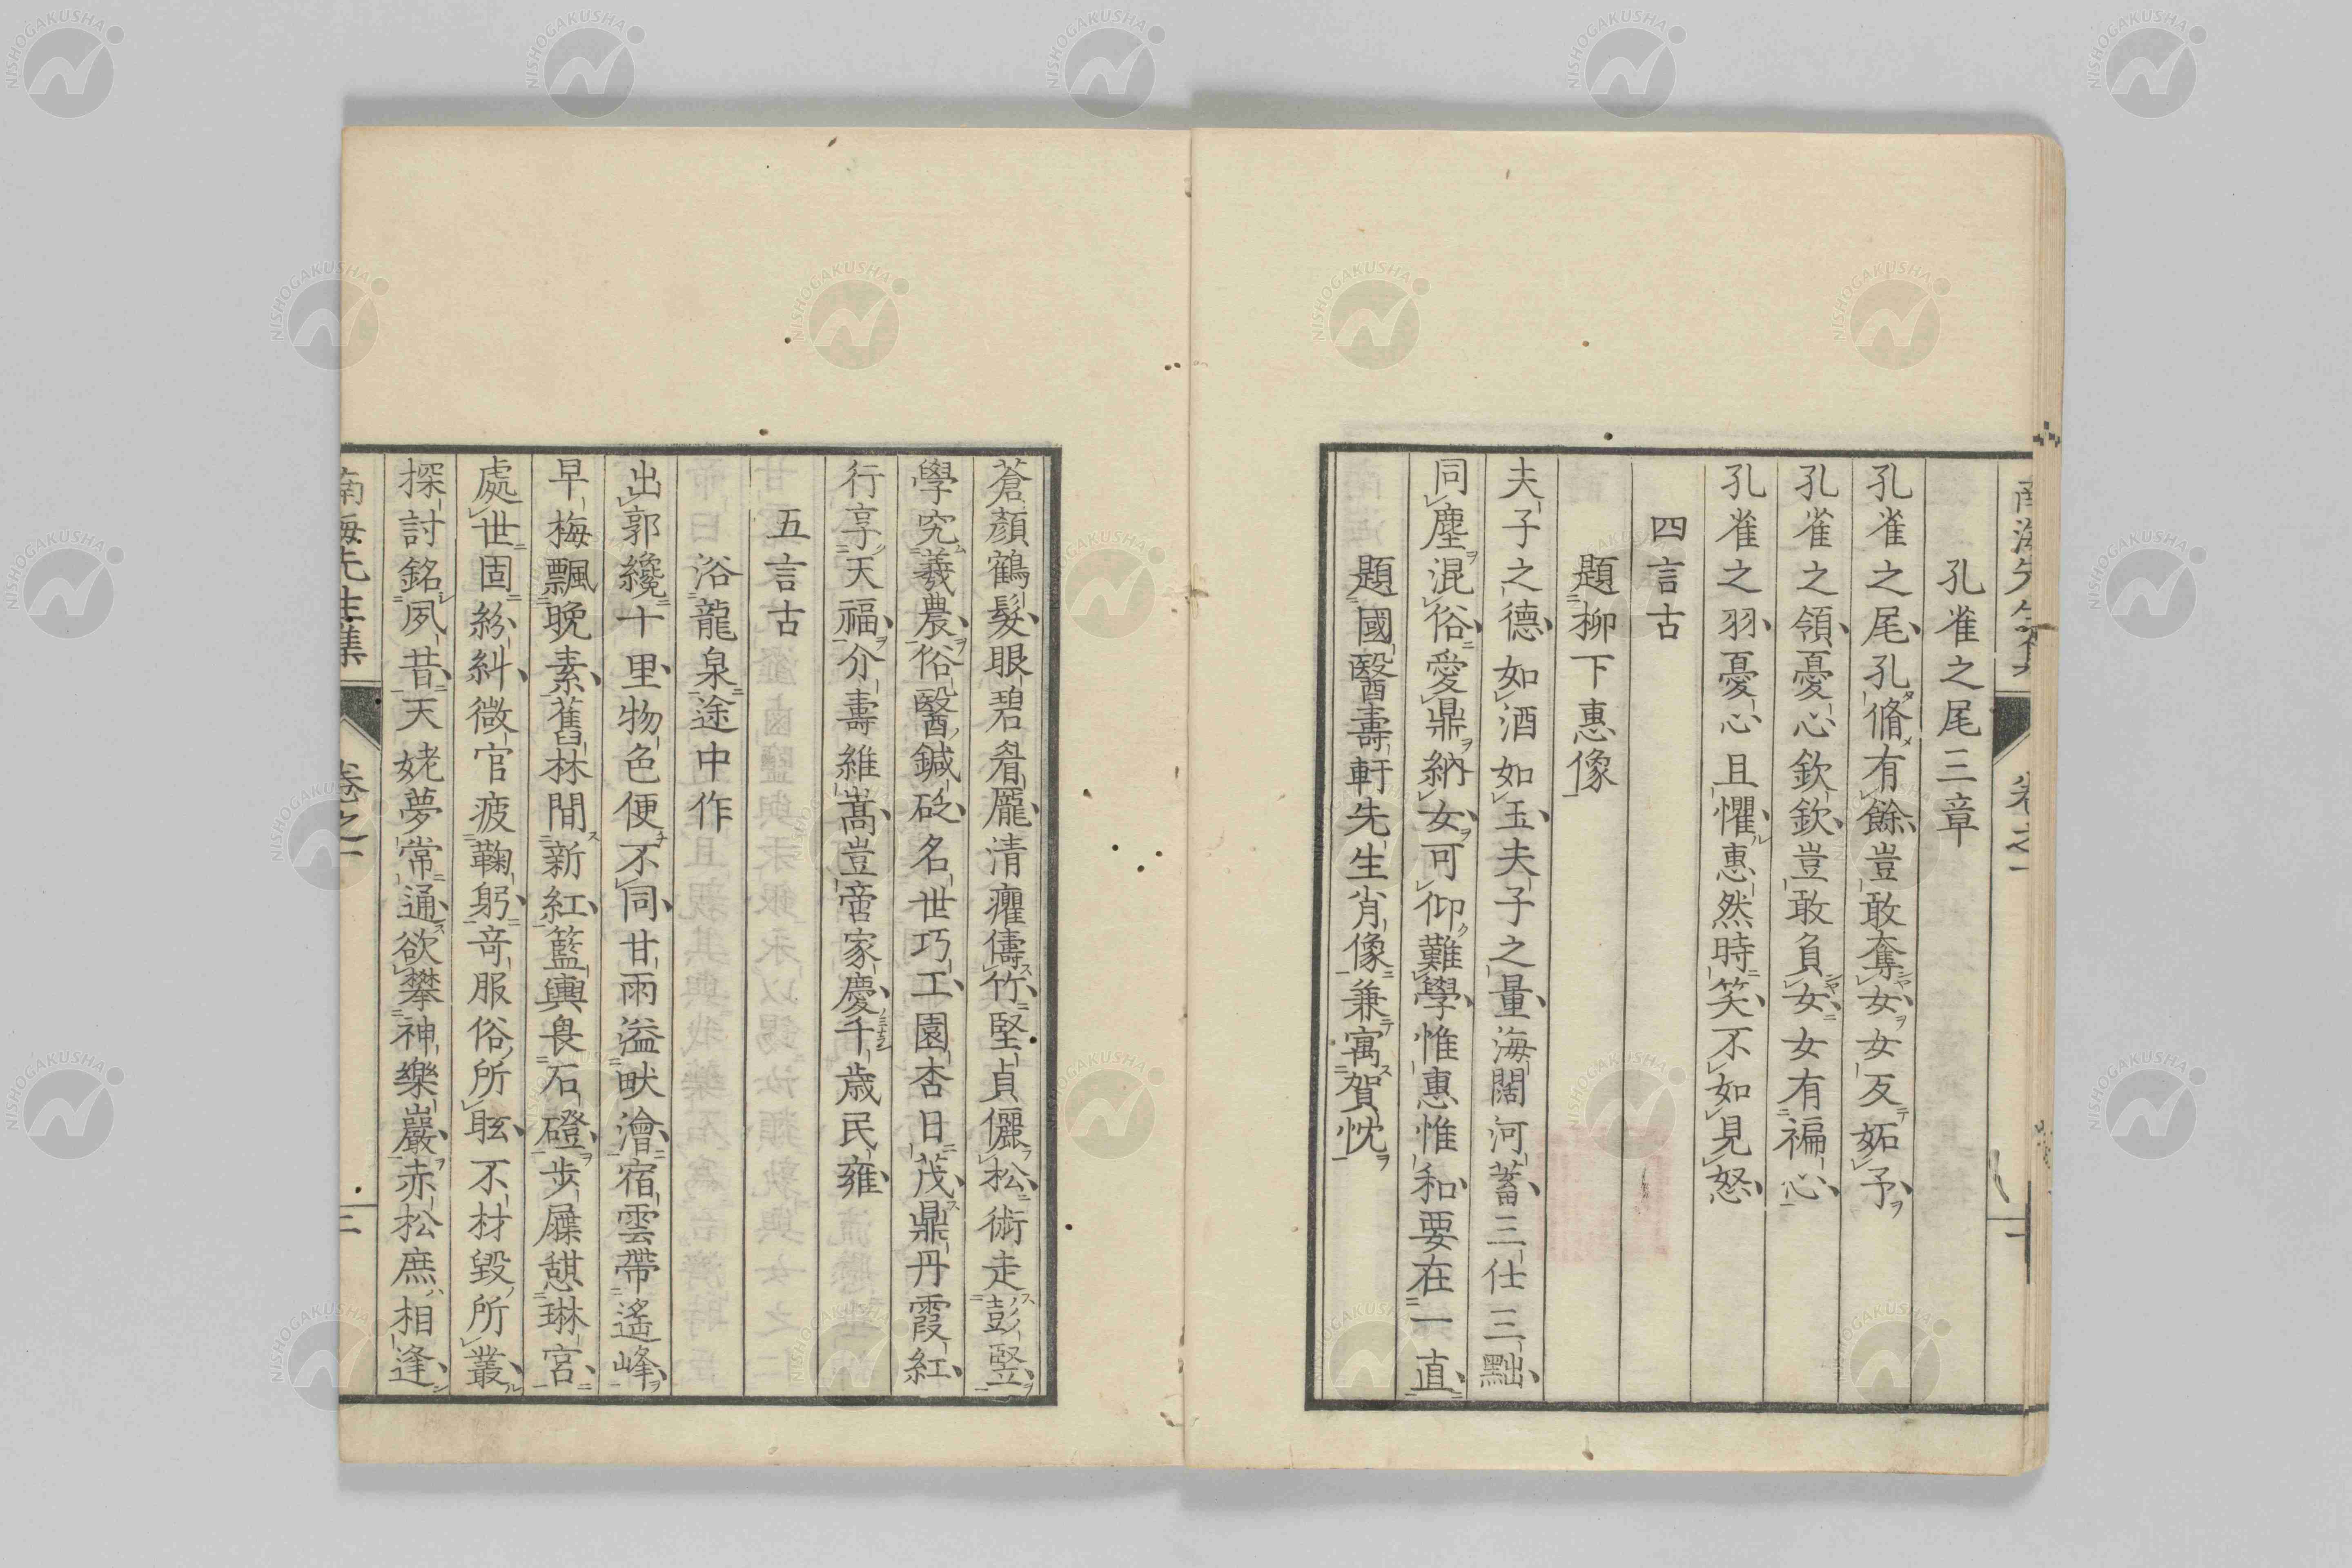 孔雀之尾三章
孔雀之尾孔脩有餘豈敢奪女女反妬予
孔雀之領憂心欽欽豈敢負女女有褊心
孔雀之羽憂心且懼惠然時笑不如見怒
四言古
題柳下惠像
夫子之德如酒如玉夫子之量海闊河蓄三仕三黜
同塵混俗愛鼎納女可仰難學惟惠惟和要在一直
題國醫壽軒先生肖像兼寓賀忱
蒼顏鶴髮眼碧眉厖清癯儔竹堅貞儷松術走彭豎
學究羲農俗醫鍼砭名世巧工園杏日茂鼎丹霞紅
行享天福介壽維嵩豈啻家慶千歲民雍
五言古
浴龍泉途中作
出郭纔十里物色便不同甘雨溢畎澮宿雲帶遙峰
早梅飄晚素舊林間新紅籃輿畏石磴步屧憩琳宮
處世固紛糾微官疲鞠躬奇服俗所眩不材毀所叢
探討銘夙昔天姥夢常通欲攀神樂巖赤松庶相逢
南海先生集 卷之一 二
NISHOGAKUSHA